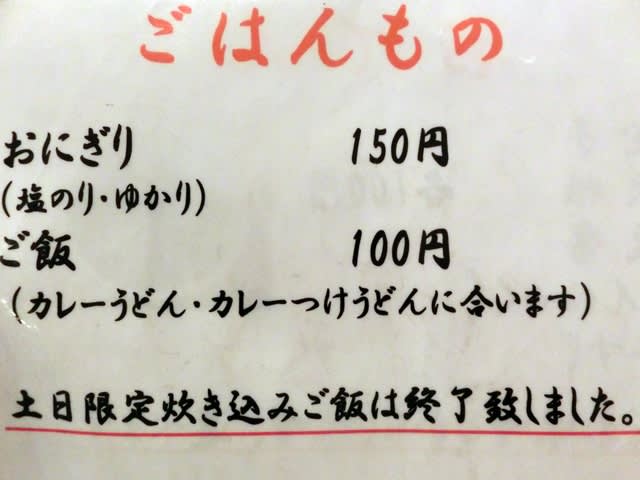 ごはんもの
おにぎり 150円
(塩のり・ゆかり)
ご飯 100円
(カレーうどん・カレーつけうどんに合います)
土日限定炊き込みご飯は終了致しました。